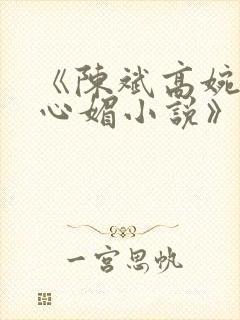 《陳斌高婉
心媚小說》
一宮思帆